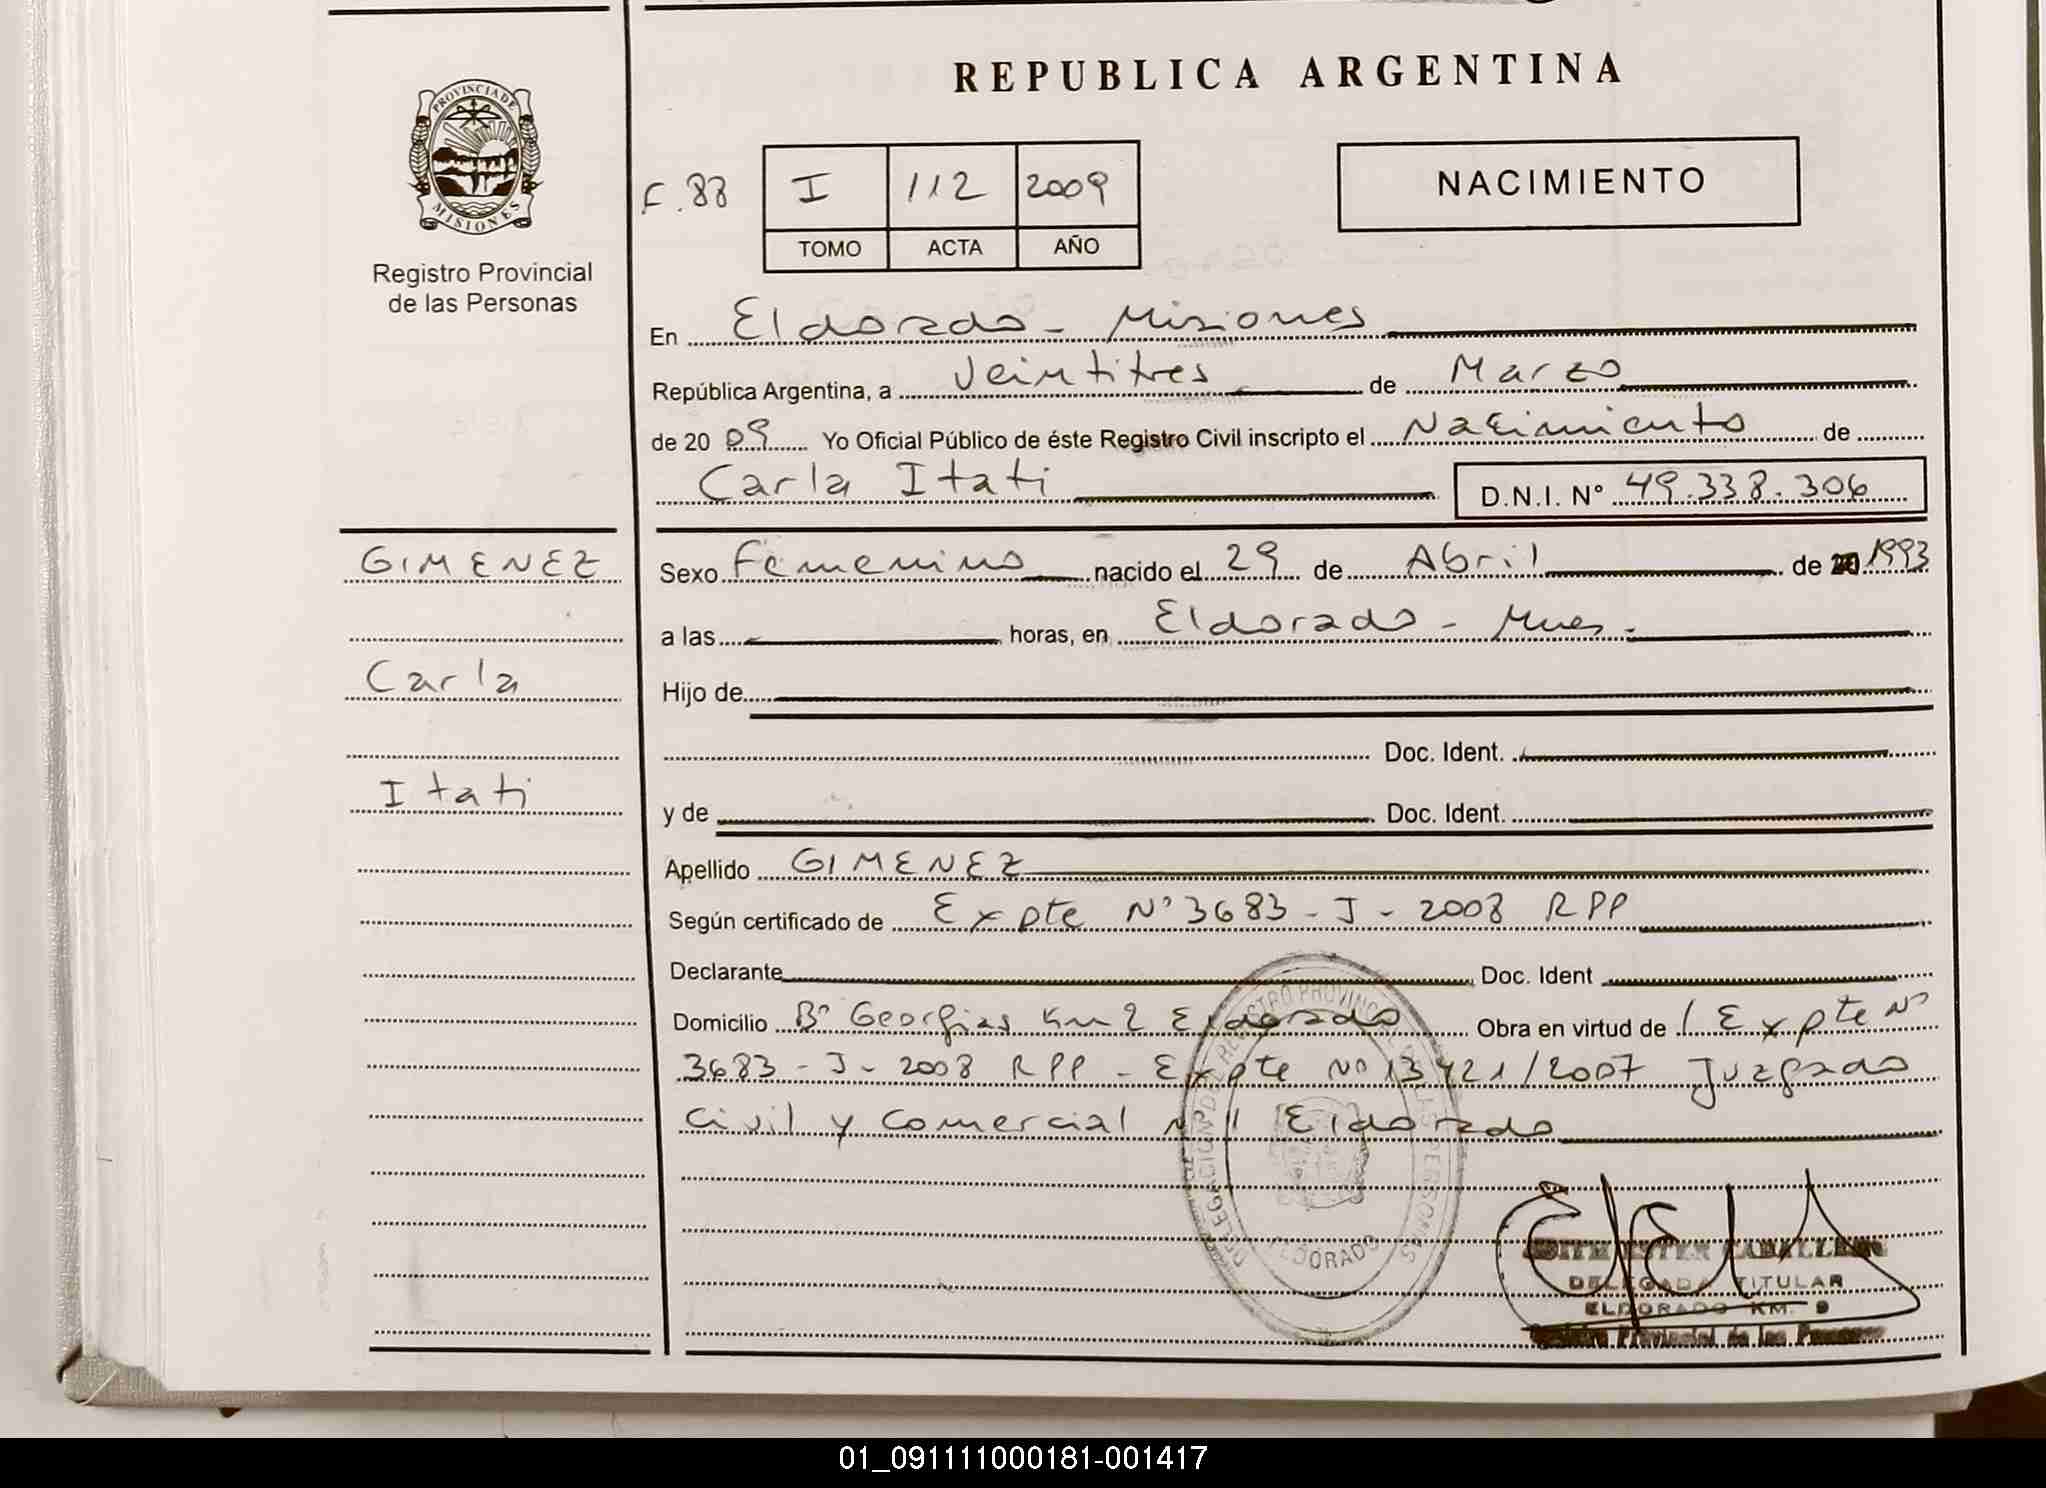 REPUBLICA ARGENTINA
PROVINCIA DE
MISIONES
Registro Provincial
de las Personas
F. 88
I 112 2009
TOMO ACTA AÑO
NACIMIENTO
En Eldorado - Misiones
República Argentina, a Veintitres de Marzo
de 20 09 Yo Oficial Público de éste Registro Civil inscripto el Nacimiento de
Carla Itati D.N.I. N° 49.338.306
GIMENEZ
Carla
Itati
Sexo Femenino nacido el 29 de Abril de 20 1993
a las horas, en Eldorado - Mnes.
Hijo de
Doc. Ident.
y de Doc. Ident.
Apellido GIMENEZ
Según certificado de Expte N° 3683 - J - 2008 RPP
Declarante Doc. Ident
Domicilio B° Georgias Km 2 Eldorado Obra en virtud de / Expte N°
3683 - J - 2008 RPP - Expte N° 13421/2007 Juzgado
Civil y Comercial N° 1 Eldorado
DELEGACION DEL REGISTRO PROVINCIAL DE LAS PERSONAS
ELDORADO
EDITH ESTER CABALLERO
DELEGADA TITULAR
ELDORADO KM. 9
Registro Provincial de las Personas
01_091111000181-001417